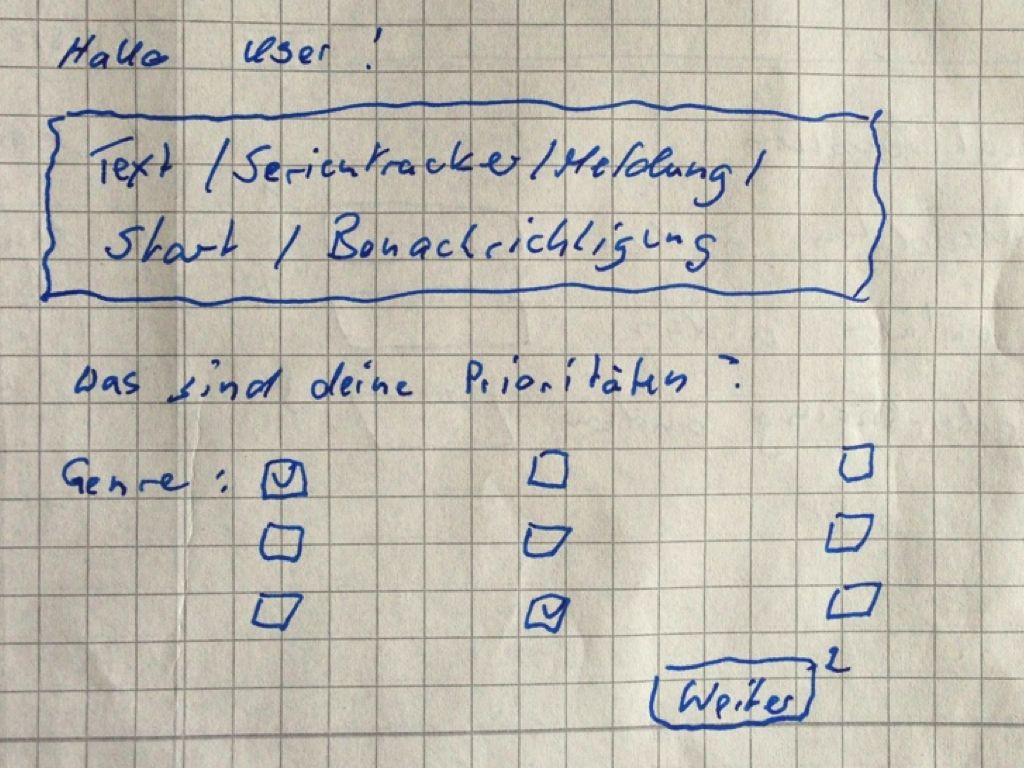 Hallo User!
Text / Serientracker / Meldung /
Start / Benachrichtigung
Das sind deine Prioritäten:
Genre:
Weiter 2